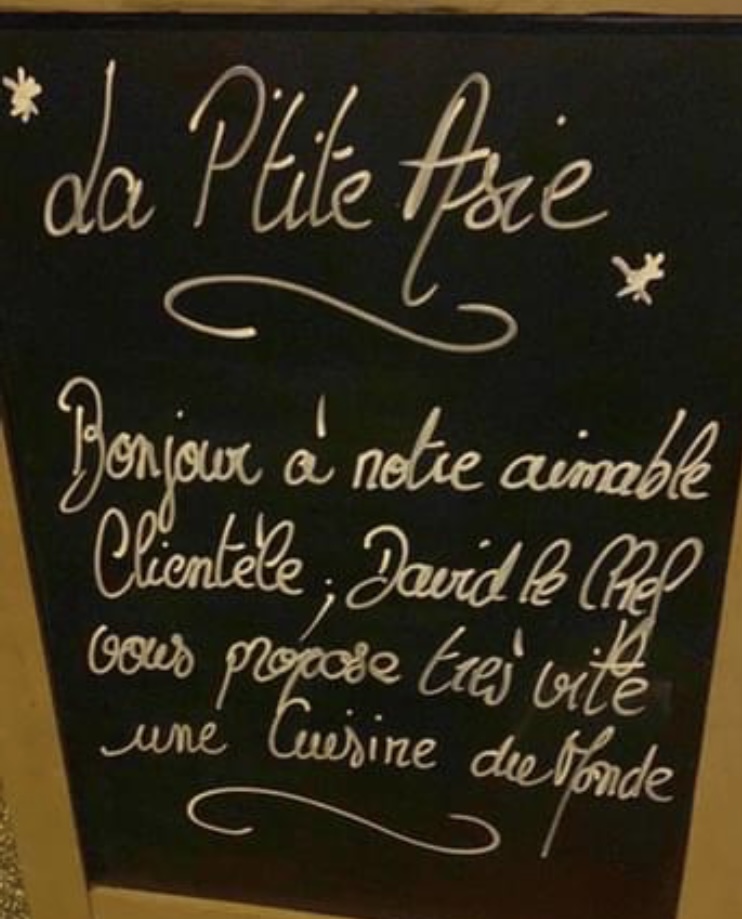 La Ptite Asie
Bonjour à notre aimable
Clientèle ; David le Chef
vous propose très vite
une Cuisine du Monde